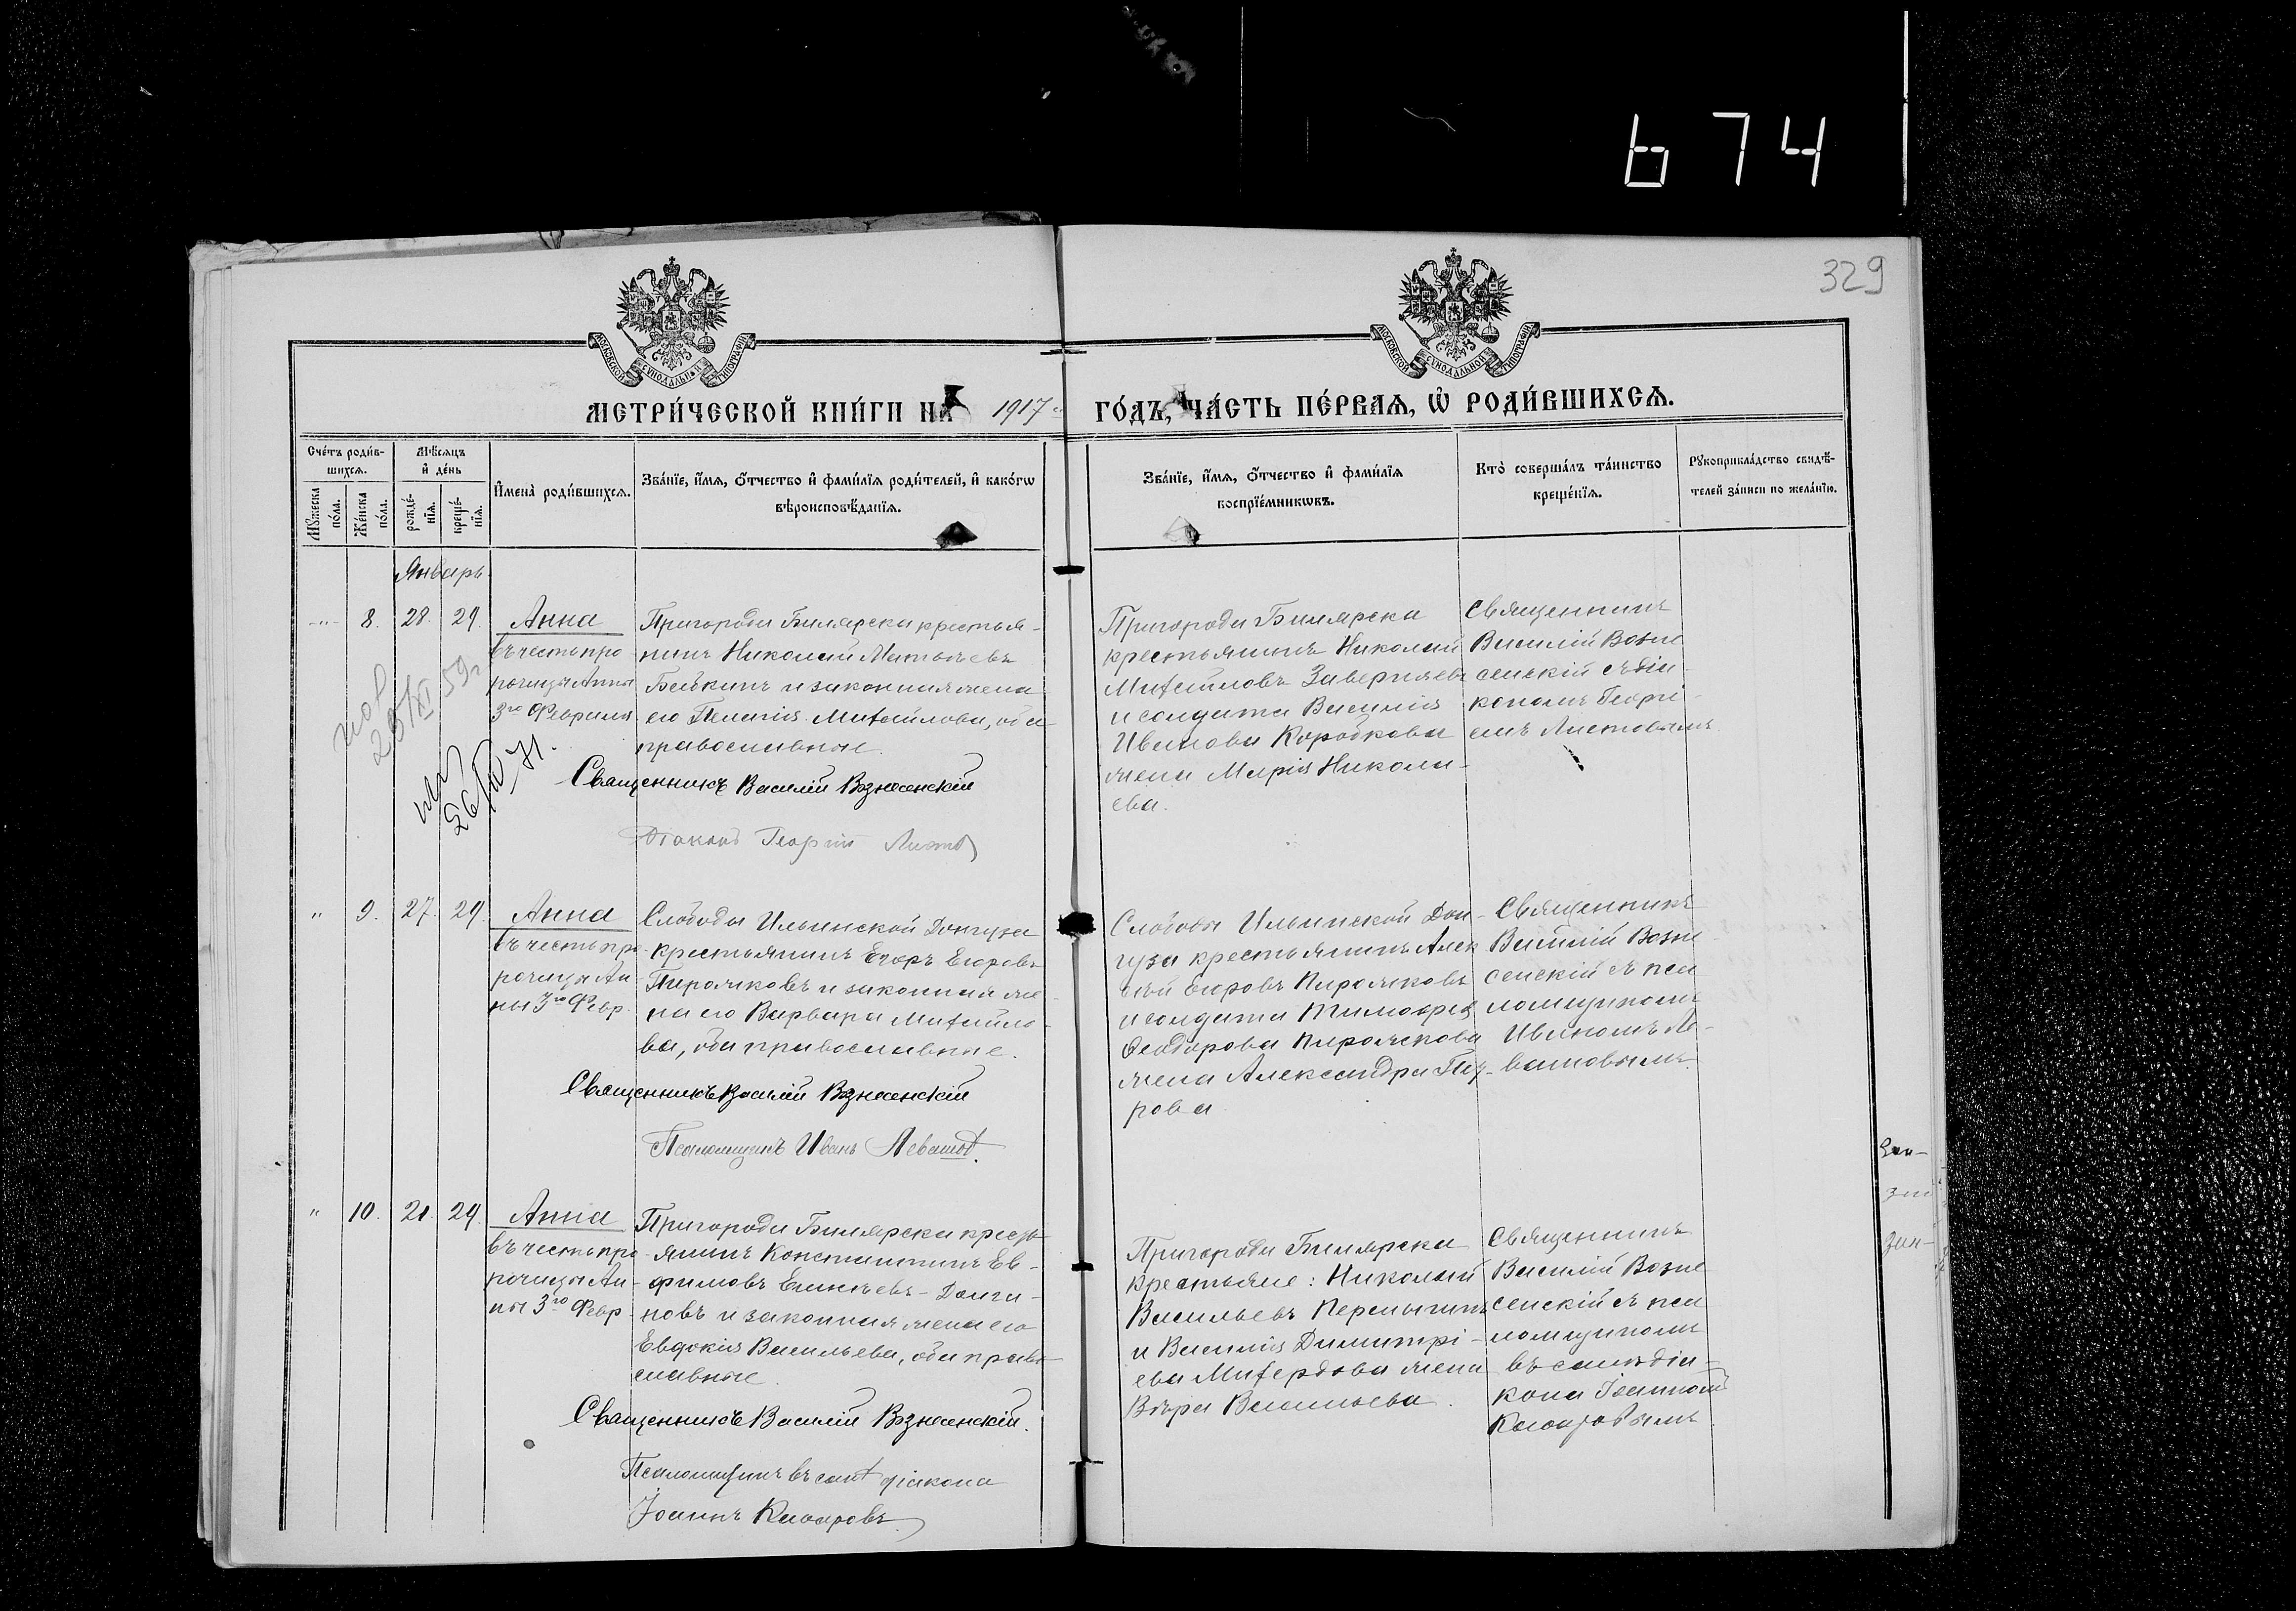 674
329
МОСКОВСКОЙ СѴНОДАЛЬНОЙ ТИПОГРАФІИ
МОСКОВСКОЙ СѴНОДАЛЬНОЙ ТИПОГРАФІИ
МЕТРИ́ЧЕСКОЙ КНИ́ГИ НА 1917 ГО́ДЪ, ЧА́СТЬ ПЕ́РВАѦ, Ѡ РОДИ́ВШИХСѦ.
Сче́тъ роди́в-
шихсѧ.
Мꙋ́жеска
по́ла.
Же́нска
по́ла.
Мѣ́сѧцъ
и҆ де́нь
рожде́-
нїѧ.
креще́-
нїѧ.
И҆мена̀ роди́вшихсѧ.
Зва́нїе, и҆́мѧ, ѻ҆́тчество и҆ фамѝлїѧ роди́телей, и҆ како́гѡ
вѣроисповѣ́данїѧ.
Зва́нїе, и҆́мѧ, ѻ҆́тчество и҆ фамѝлїѧ
воспрїе́мникѡвъ.
Кто̀ соверша́лъ та́инство
креще́нїѧ.
Рꙋкоприкла́дство свидѣ́-
телей за́писи по жела́нїю.
Январь
-"- 8. 28. 29.
Анна
въ честь про
рочицы Анны
3го Февраля
Пригорода Билярска крестья-
нинъ Николай Матвѣевъ
и законная жена
его Пелагія Михайлова, оба
православные.
Священникъ Василій Вознесенскій
Діаконъ Георгій Листовъ
Пригорода Билярска
крестьянинъ Николай
Михайловъ Заверняевъ
и солдата Василія
Иванова Коробкова
жена Марія Никола-
ева.
Священникъ
Василій Возне
сенскій съ діа-
кономъ Георгі-
емъ Листовымъ
26/IV-71.
" 9. 27. 29.
Анна
въ честь про-
рочицы Ан
ны 3го Февр.
Слободы Ильинской Донгуза
крестьянинъ Егоръ Егоровъ
Пирожковъ и законная же-
на его Варвара Михайло-
ва, оба православные.
Священникъ Василій Вознесенскій
Псаломщикъ Иванъ Левашов.
Слободы Ильинской Дон-
гуза крестьянинъ Алек
сѣй Егоровъ Пирожковъ
и солдата Тимофея
Ѳеодорова Пирожкова
жена Александра Пет-
рова
Священникъ
Василій Возне-
сенскій съ пса
ломщикомъ
Иваномъ Ле-
вашовымъ.
" 10. 21. 29.
Анна
въ честь про-
рочицы Ан-
ны 3го Февр.
Пригорода Билярска кресть
янинъ Константинъ Ев-
фимовъ
новъ и законная жена его
Евдокія Васильева, оба право-
славные.
Священникъ Василій Вознесенскій.
Псаломщикъ въ санѣ діакона
Іоаннъ
Пригорода Билярска
крестьяне: Николай
Васильевъ
и Василія Димитрі-
ева жена
Вѣра Васильева.
Священникъ
Василій Возне
сенскій съ пса
ломщикомъ
въ санѣ діа-
кона Іоанномъ